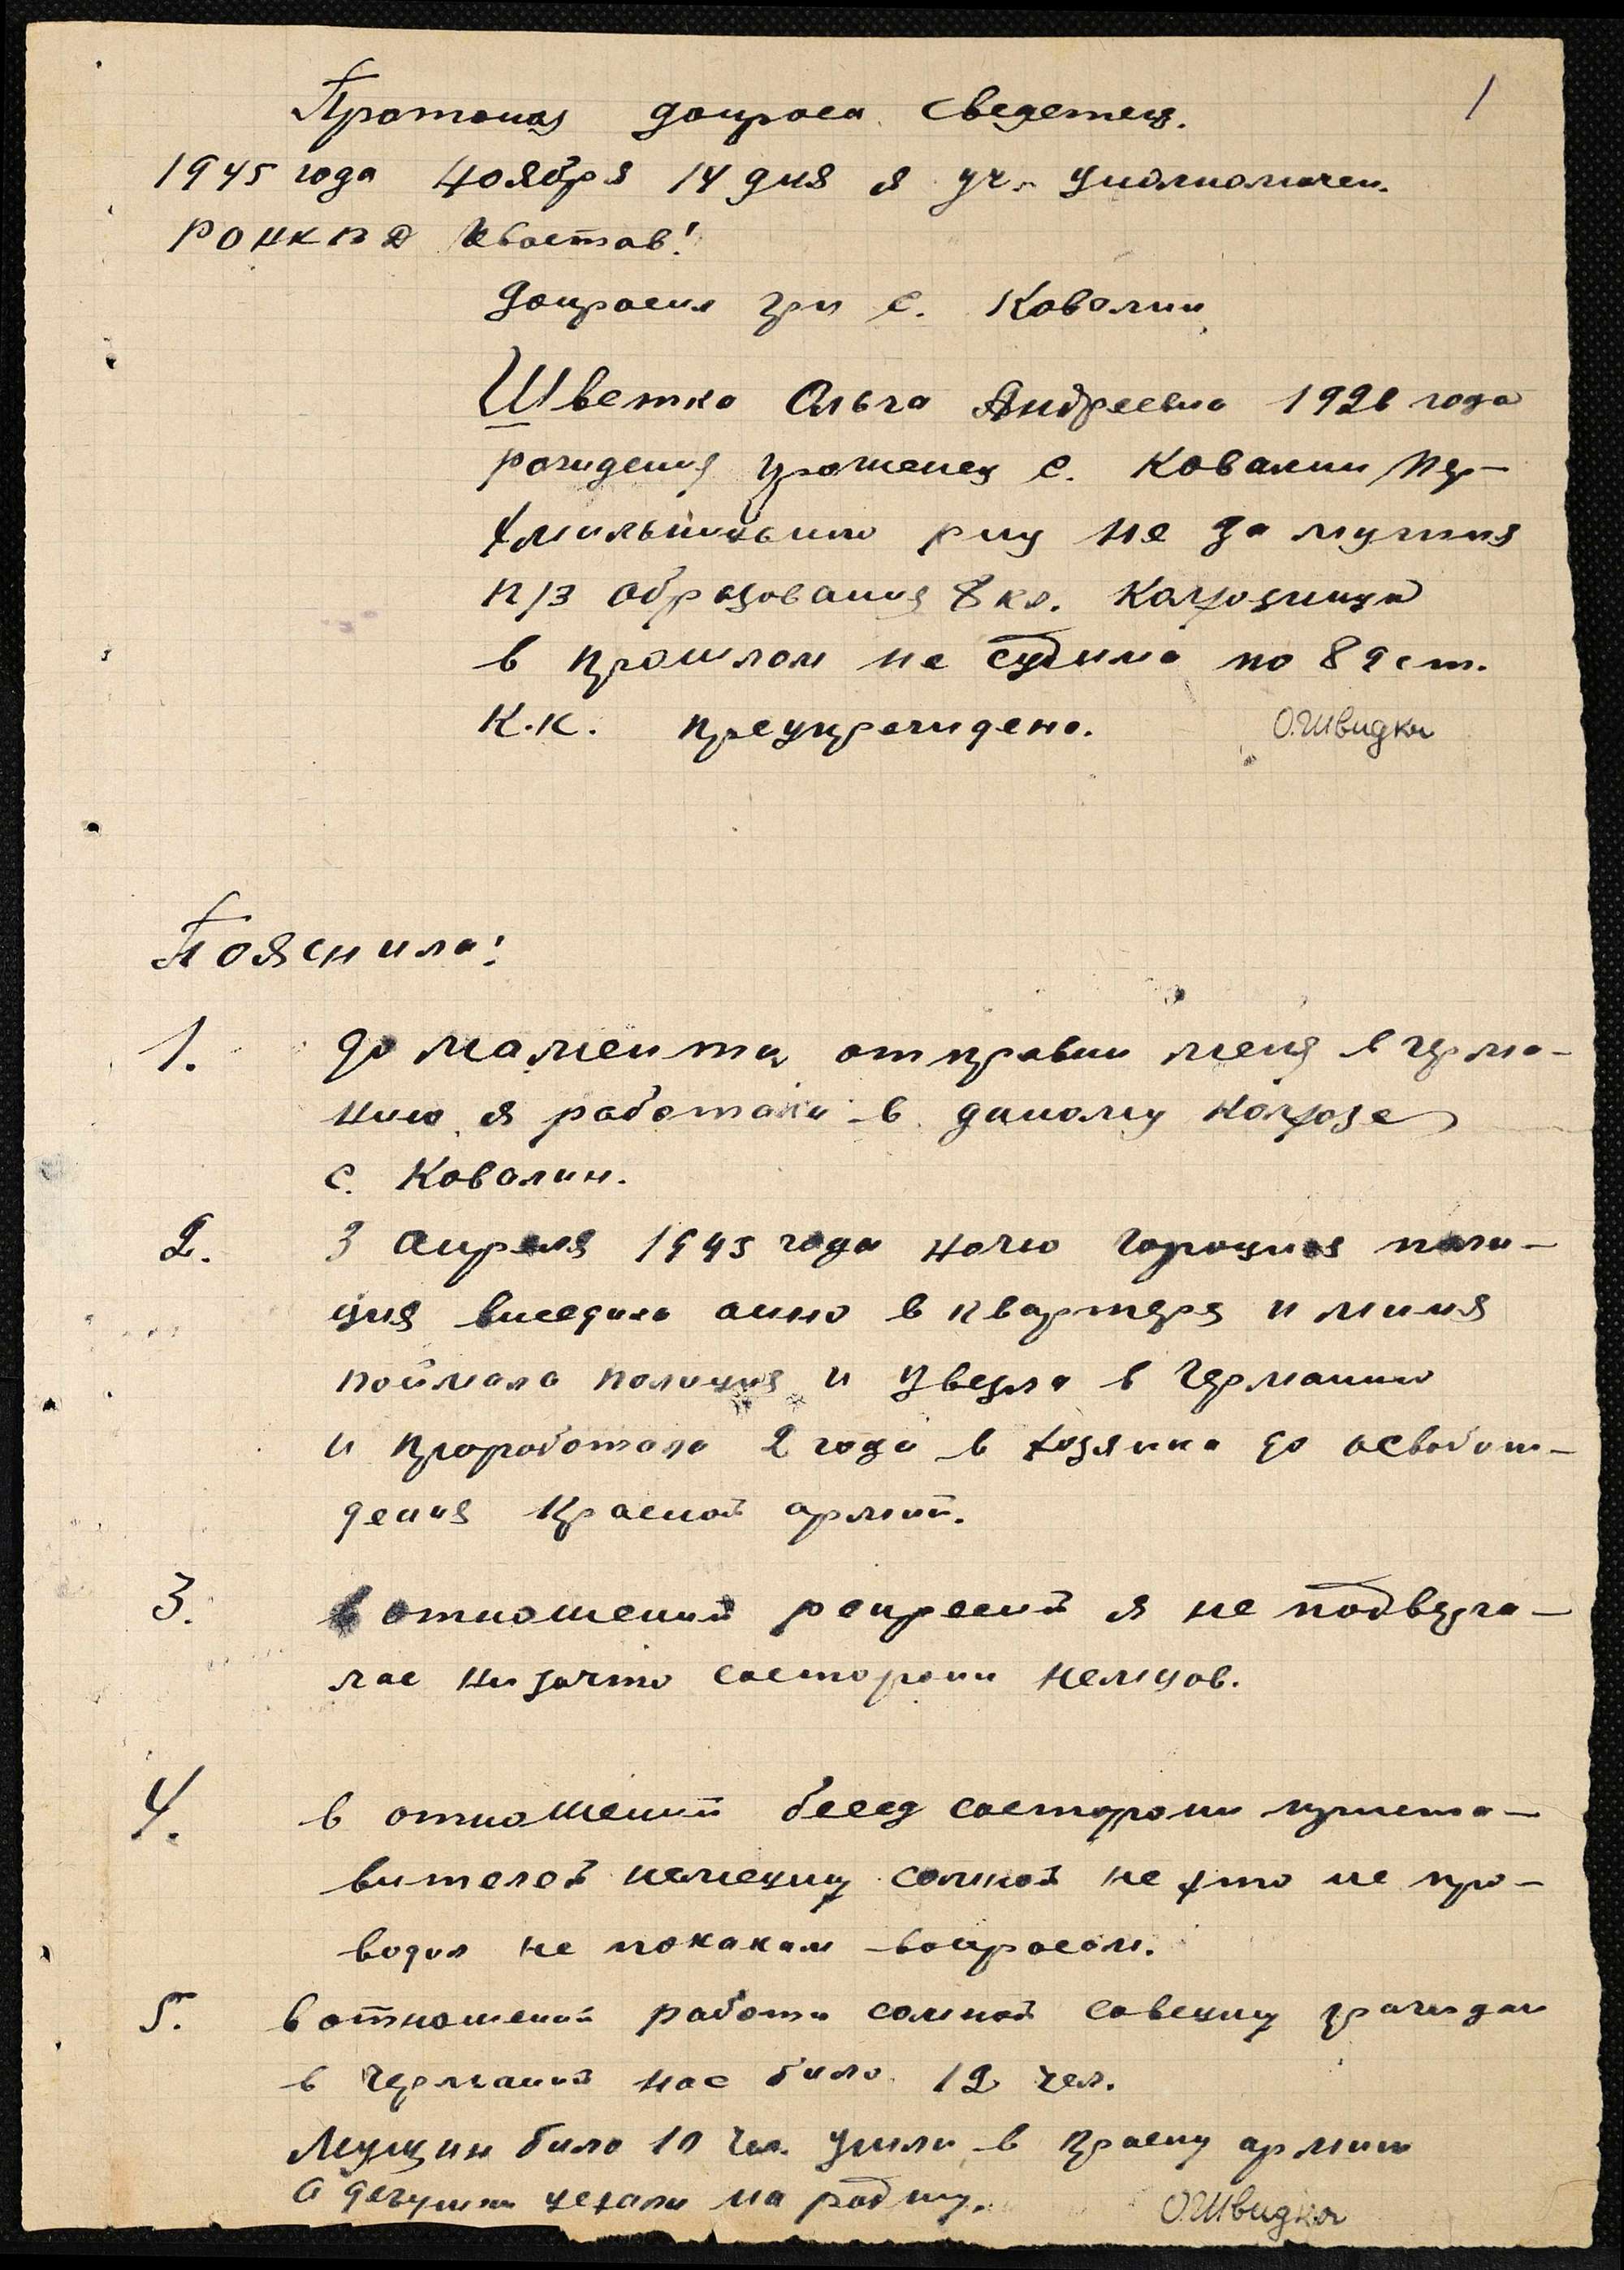 1
Протокол допроса сведетел.
1945 года Ноября 14 дня я уч. Уполномочен.
РОНКВД Хвостов!
Допросил гр-н с. Ковалин
Шветко Ольга Андреевна 1926 года
рождения уроженец с. Ковалин Пер-
хмильницького р-ну не за мужня
п/з образования 8 кл. Колхозница
в прошлом не судима по 89 ст.
К.К. преупреждено. О.Швидка
Пояснила:
1. до момента отправки меня в Герма-
нию я работала в даному колхозе
с. Ковалин.
2. 3 апреля 1943 года ночю поли-
ция висадила окно в квартеря и миня
поймала полиция и увезла в Германию
и проработала 2 года в хозяина до освобож-
дения Красной армий.
3. в отношений репресий я не подверга-
лас низачто состорони немцов.
4. в отношений бесед состорони
вителей немецку сомной не хто не про-
водил не покаким вопросам.
5. в отношений работи сомной совецку граждан
в Германий нас било 12 чел.
Мущин било 10 чел. ушли в Красну армию
а девушки уехали на родину. О.Швидка